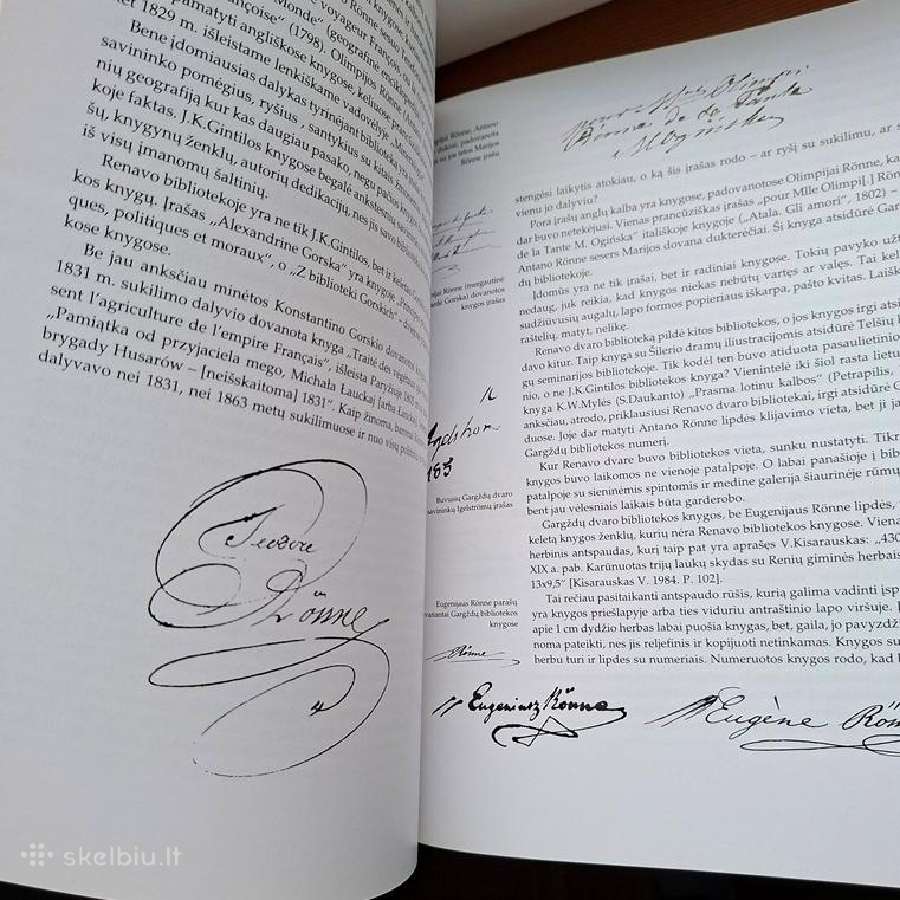 Monde" (geografinė enciklopedija
voyageur François"
nçoise" (1798). Olimpijos Rönne (Ant
pamatyti angliškose knygose, keliuose pran
et 1829 m. išleistame lenkiškame vadovėlyje
Bene įdomiausias dalykas tyrinėjant bibliotekas
savininko pomėgius, ryšius, santykius su kitais žmon
nių geografiją kur kas daugiau pasako, negu pačios knygos
koje faktas. J.K.Gintilos knygose begalė ankstesnių
šų, knygynų ženklų, autorių dedikacijų, nes jis savo bibl
iš visų įmanomų šaltinių.
Renavo bibliotekoje yra ne tik J.K.Gintilos, bet ir kelios
kos knygų. Įrašas „Alexandrine Gorska" yra knygose
ques, politiques et moraux", o „Z biblioteki Gorskich"
kose knygose.
Be jau anksčiau minėtos Konstantino Gorskio dovanotos
1831 m. sukilimo dalyvio dovanota knyga „Traité des
sent l'agriculture de l'empire Français", išleista Paryžiuje
„Pamiątka od przyjaciela mego, Michała Łauckaj
brygady Husarów – [neišskaitoma] 1831". Kaip žinoma,
dalyvavo nei 1831, nei 1863 metų sukilimuose ir nuo visų
Rönne
pour Mlle Olimpi
Rönne de la Tante
M Oginska
Rönne įrašu
stengėsi laikytis atokiau, o ką šis įrašas rodo – ar ryšį su sukilimu, ar s
vienu jo dalyviu?
Pora įrašų anglų kalba yra knygose, padovanotose Olimpijai Rönne, ka
dar buvo netekėjusi. Vienas prancūziškas įrašas „pour Mlle Olimpi[.] Rön
de la Tante M. Ogińska" itališkoje knygoje („Atala. Gli amori", 1802) –
Antano Rönne sesers Marijos dovana dukterėčiai. Ši knyga atsidūrė Gar
dų bibliotekoje.
Įdomūs yra ne tik įrašai, bet ir radiniai knygose. Tokių pavyko užt
nedaug, juk reikia, kad knygos niekas nebūtų vartęs ar valęs. Tai kel
sudžiūvusių augalų, lapo formos popieriaus iškarpa, pašto kvitas. Laišk
raštelių, matyt, nelikę.
Renavo dvaro biblioteką pildė kitos bibliotekos, o jos knygos irgi atsi
davo kitur. Taip knyga su Šilerio dramų iliustracijomis atsidūrė Telšių k
gų seminarijos bibliotekoje. Tik kodėl ten buvo atiduota pasaulietini
nio, o ne J.K.Gintilos bibliotekos knyga? Vienintelė iki šiol rasta lietu
knyga K.W.Mylės (S.Daukanto) „Prasma lotinu kalbos" (Petrapilis,
anksčiau, atrodo, priklausiusi Renavo dvaro bibliotekai, irgi atsidūrė G
duose. Joje dar matyti Antano Rönne lipdės klijavimo vieta, bet ji ja
Gargždų bibliotekos numerį.
Kur Renavo dvare buvo bibliotekos vieta, sunku nustatyti. Tikr
knygos buvo laikomos ne vienoje patalpoje. O labai panašioje į bib
patalpoje su sieninėmis spintomis ir medine galerija šiaurinėje rūmų
bent jau vėlesniais laikais būta garderobo.
Gargždų dvaro bibliotekos knygos, be Eugenijaus Rönne lipdės,
keletą knygos ženklų, kurių nėra Renavo bibliotekos knygose. Viena
herbinis antspaudas, kurį taip pat yra aprašęs V.Kisarauskas: „430
XIX a. pab. Karūnuotas trijų laukų skydas su Renių giminės herbais
13x9,5" [Kisarauskas V. 1984. P. 102].
Tai rečiau pasitaikanti antspaudo rūšis, kurią galima vadinti įsp
yra knygos priešlapyje arba ties viduriu antraštinio lapo viršuje. J
apie 1 cm dydžio herbas labai puošia knygas, bet, gaila, jo pavyzdž
noma pateikti, nes jis reljefinis ir kopijuoti netinkamas. Knygos su
herbu turi ir lipdes su numeriais. Numeruotos knygos rodo, kad k
knygos įrašas
Buvusių Gargždų dvaro
savininkų Igelströmų įrašas
Eugenijaus Rönne parašų
variantai Gargždų bibliotekos
knygose
Rönne
Eugeniusz Rönne
Eugène Rön
skelbiu.lt